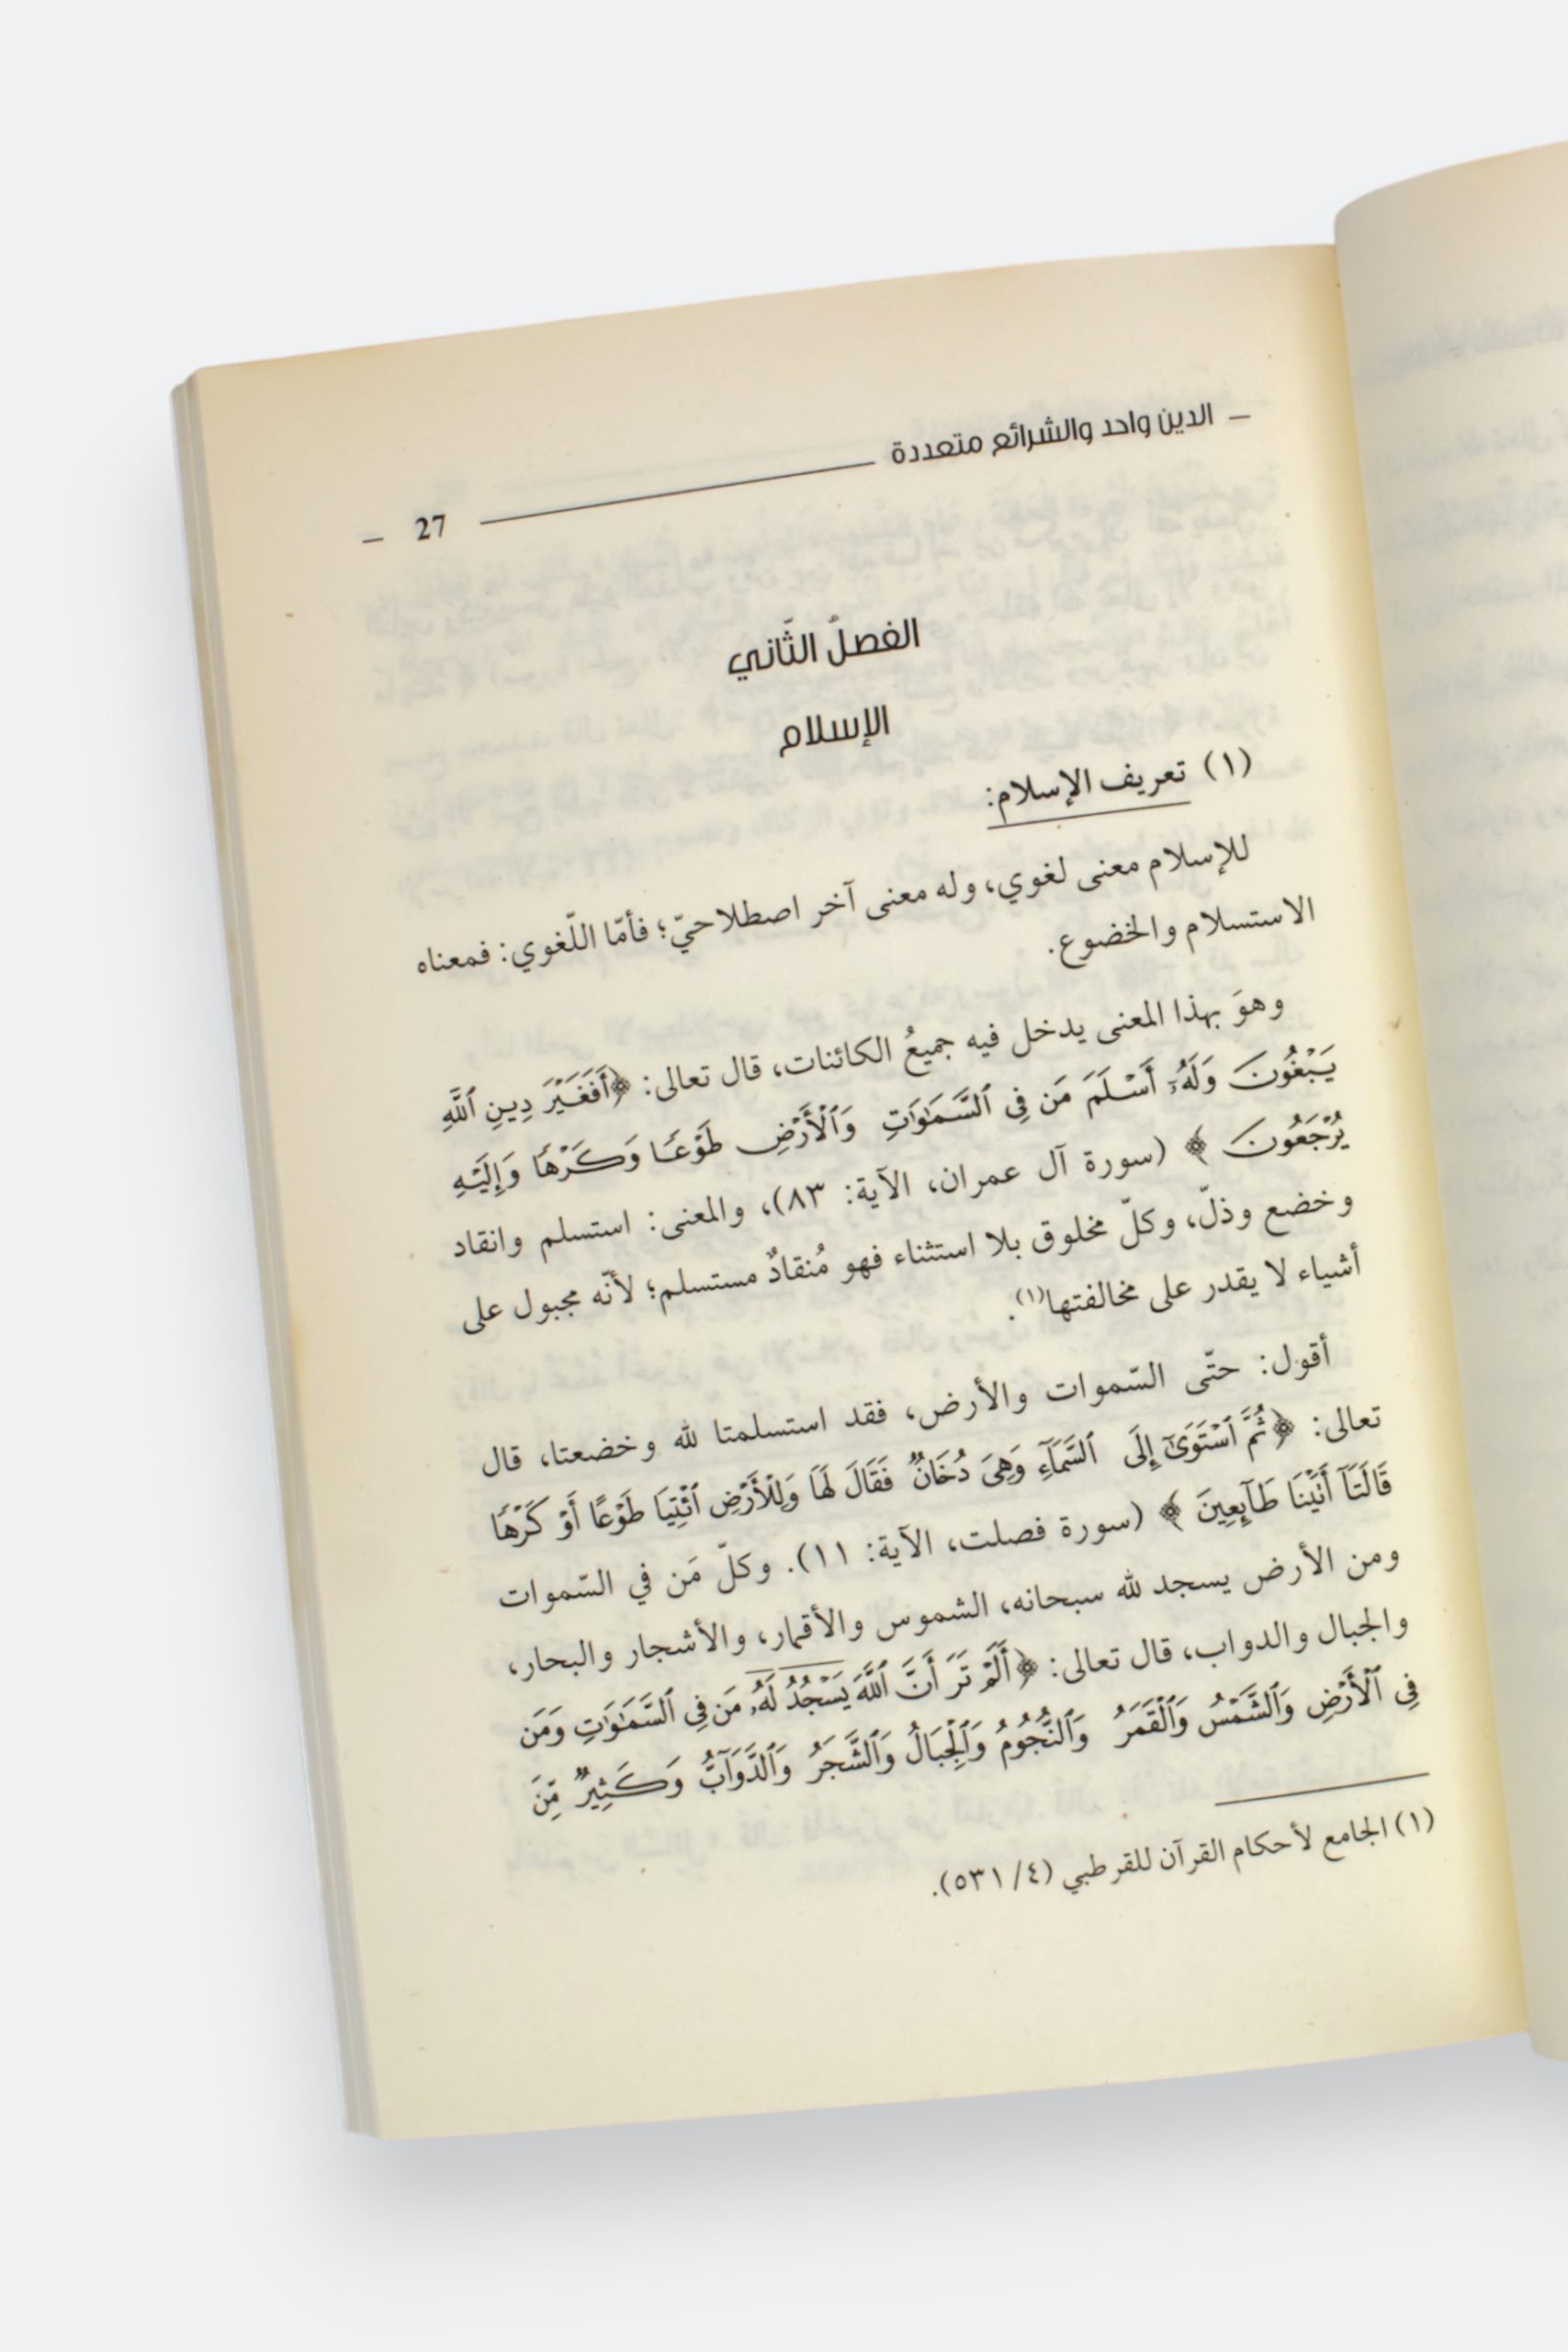 الدين واحد والشرائع متعددة
27
الفصلُ الثّاني
الإسلام
(١) تعريف الإسلام:
للإسلام معنى لغوي، وله معنى آخر اصطلاحيّ؛ فأمّا اللّغوي: فمعناه
الاستسلام والخضوع.
وهوَ بهذا المعنى يدخل فيه جميعُ الكائنات، قال تعالى: ﴿أَفَغَيْرَ دِينِ ٱللَّهِ
يَبْغُونَ وَلَهُۥٓ أَسْلَمَ مَن فِى ٱلسَّمَٰوَٰتِ وَٱلْأَرْضِ طَوْعًا وَكَرْهًا وَإِلَيْهِ
يُرْجَعُونَ ﴾ (سورة آل عمران، الآية: ٨٣)، والمعنى: استسلم وانقاد
وخضع وذلّ، وكلّ مخلوق بلا استثناء فهو مُنقادٌ مستسلم؛ لأنّه مجبول على
أشياء لا يقدر على مخالفتها(١).
أقول: حتّى السّموات والأرض، فقد استسلمتا لله وخضعتا، قال
تعالى: ﴿ثُمَّ ٱسْتَوَىٰٓ إِلَى ٱلسَّمَآءِ وَهِىَ دُخَانٌ فَقَالَ لَهَا وَلِلْأَرْضِ ٱئْتِيَا طَوْعًا أَوْ كَرْهًا
قَالَتَآ أَتَيْنَا طَآئِعِينَ ﴾ (سورة فصلت، الآية: ١١). وكلّ مَن في السّموات
ومن الأرض يسجد لله سبحانه، الشموس والأقمار، والأشجار والبحار،
والجبال والدواب، قال تعالى: ﴿أَلَمْ تَرَ أَنَّ ٱللَّهَ يَسْجُدُ لَهُۥ مَن فِى ٱلسَّمَٰوَٰتِ وَمَن
فِى ٱلْأَرْضِ وَٱلشَّمْسُ وَٱلْقَمَرُ وَٱلنُّجُومُ وَٱلْجِبَالُ وَٱلشَّجَرُ وَٱلدَّوَآبُّ وَكَثِيرٌ مِّنَ
(١) الجامع لأحكام القرآن للقرطبي (٤/ ٥٣١).